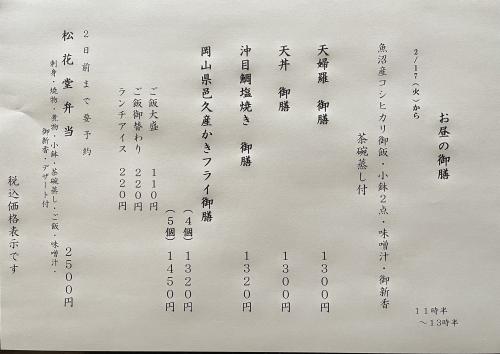 お昼の御膳
11時半
～13時半
2/17(火)から
魚沼産コシヒカリ御飯・小鉢2点・味噌汁・御新香
茶碗蒸し付
天婦羅 御膳 1300円
天丼 御膳 1300円
沖目鯛塩焼き 御膳 1320円
岡山県邑久産かきフライ御膳 (4個) 1320円
(5個) 1450円
ご飯大盛 110円
ご飯御替わり 220円
ランチアイス 220円
2日前まで要予約
松花堂弁当 2500円
刺身・焼物・煮物・小鉢・茶碗蒸し・ご飯・味噌汁・
御新香・デザート付
税込価格表示です